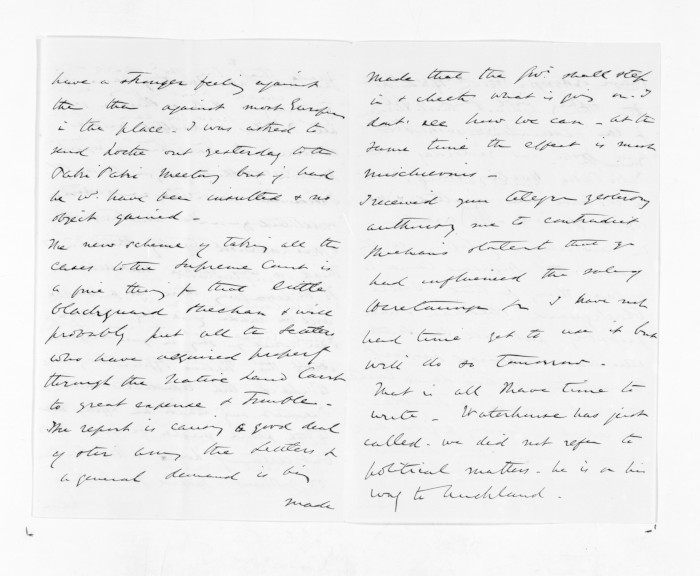 have a stronger feeling against
the than against most Europeans
in the place - I was asked to
send Locke out yesterday to the
Paki Paki meeting but if had
he wd. have been insulted & no
object gained -
The new scheme of taking all the
cases to the Supreme Court is
a fine thing for that little
blackguard Sheehan & will
probably put all the settlers
who have acquired property
through the Native Land Court
to great expense & trouble -
The report is causing a good deal
of stir among the settlers &
a general demand is being
made
made that the Govt. shall step
in & check what is going on. I
don't see how we can - at the
same time the effect is most
mischievous -
I received your telegram yesterday
authorising me to contradict
Sheehan's statement that you
had influenced the sale of
for I have not
had time yet to use it but
will do so tomorrow -
That is all I have time to
write - Waterhouse has just
called - we did not refer to
political matters - he is on his
way to Auckland.